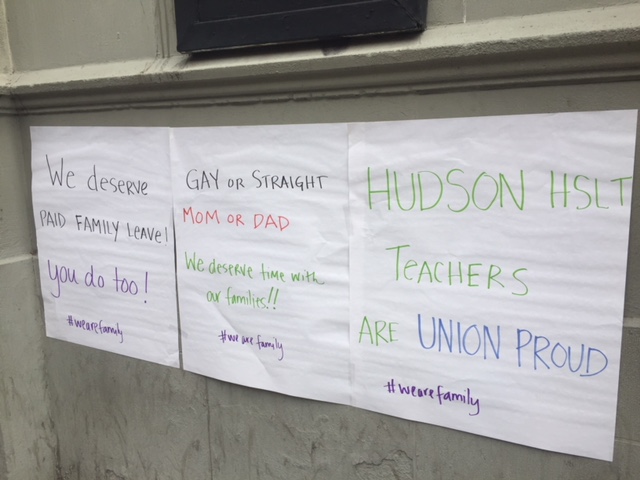 We deserve
PAID FAMILY Leave!
you do too!
#wearefamily
GAY or STRAIGHT
MOM OR DAD
We deserve time with
our families!!
#we are family
HUDSON HSLT
TeACHERS
ARE UNION PROUD
#wearefamily